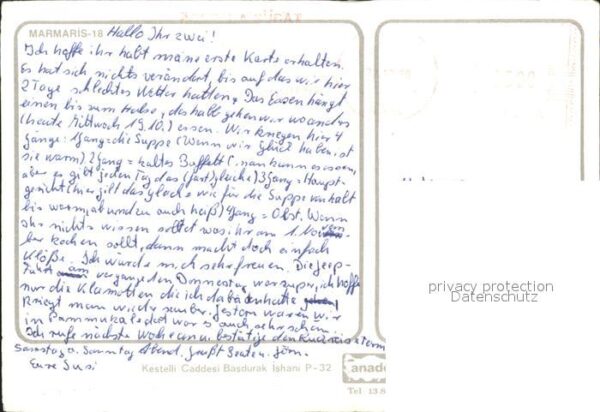 MARMARIS-18 Hallo Ihr zwei!
Ich hoffe ihr habt meine erste Karte erhalten.
Es hat sich nichts verändert, bis auf das wir hier
2 Tage schlechtes Wetter hatten. Das Essen hängt
einen bis zum Halse, deshalb gehen wir woanders
(heute Mittwoch 19.10.) essen. Wir kriegen hier 4
gänge: 1gang = die Suppe (Wenn wir Glück haben, ist
sie warm) 2gang = kaltes Buffett (man kann es essen,
aber es gibt jeden Tag das (fast) gleiche) 3gang = Haupt-
gericht (hier gilt das gleiche wie für die Suppe von kalt
bis warm, ab und zu auch heiß) 4gang = Obst. Wenn
ihr nichts wissen solltet was ihr am 1. November
kochen sollt, dann macht doch einfach
Klöße. Ich würde mich sehr freuen. Die Jeep-
Fahrt vergangenen Donnerstag war super, ich hoffe
nur die Klamotten die ich dabei hatte
kriegt man wieder sauber. Gestern waren wir
in Pammukale dort war's auch sehr schön.
Ich rufe nächste Woche an u. bestätige den
Samstag o. Sonntag Abend. Grüßt
Eure Susi
privacy protection
Datenschutz
Kestelli Caddesi Başdurak İşhanı P-32
anad
Tel. 13.8